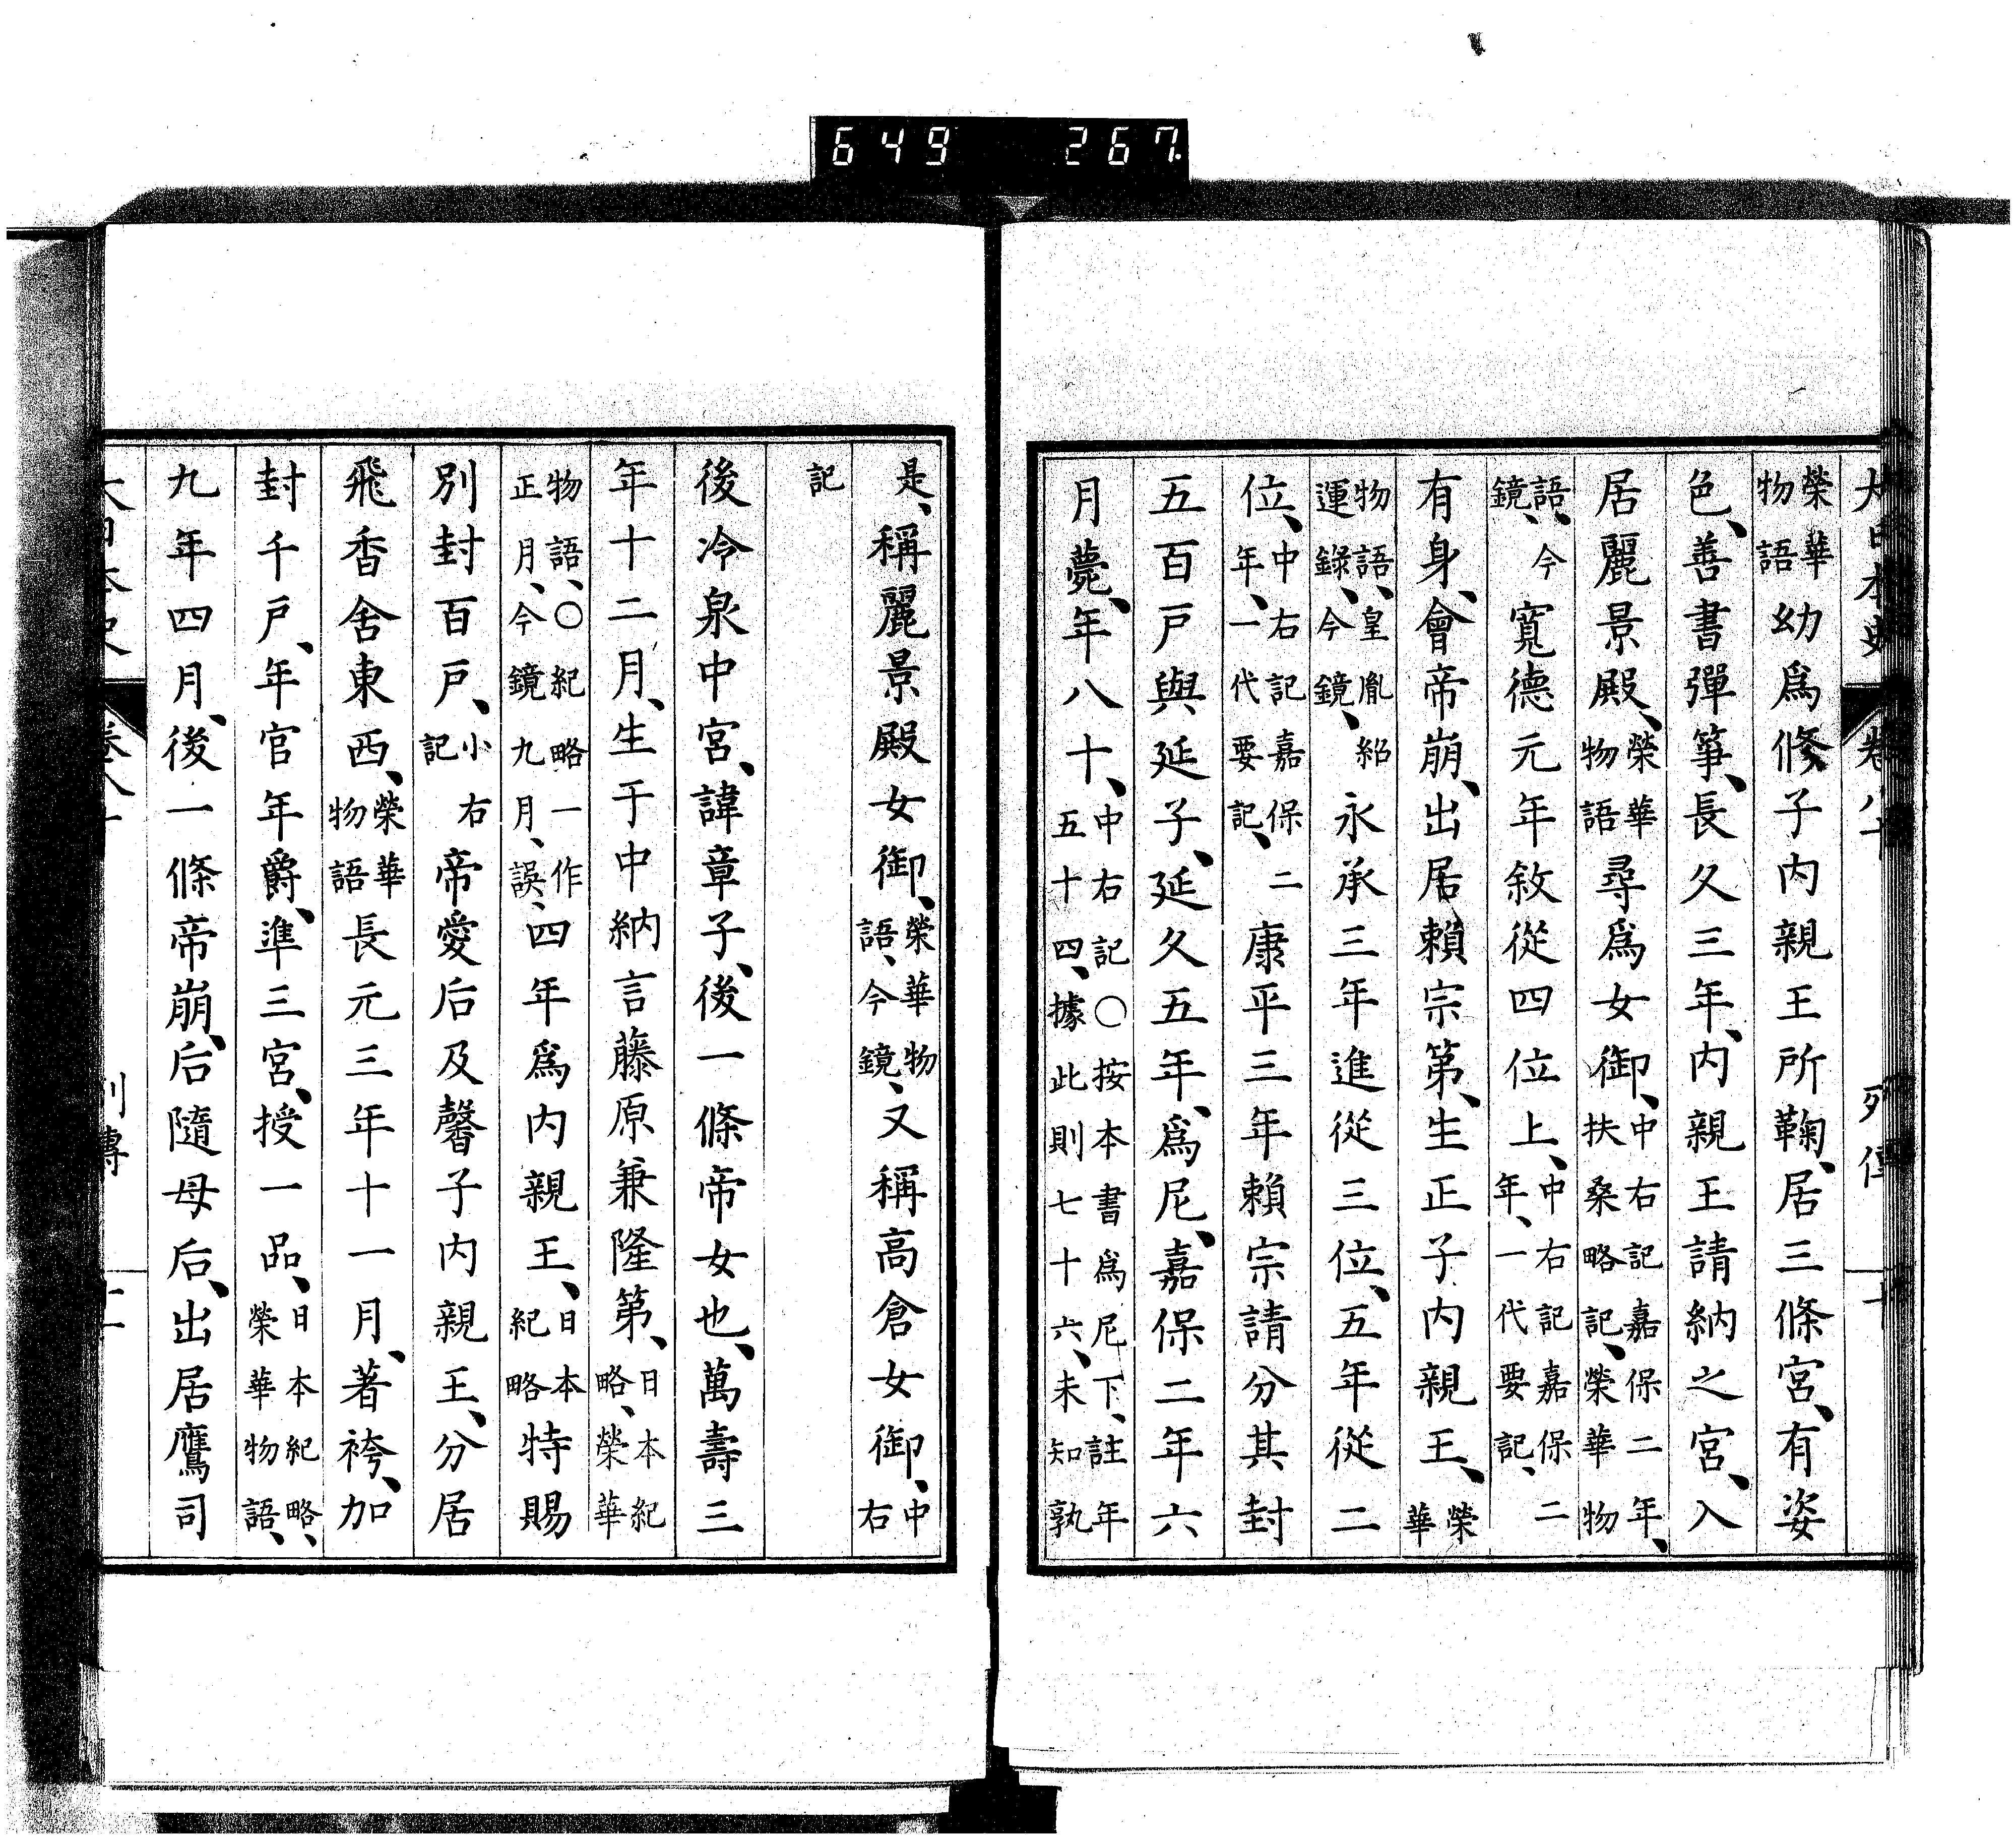 649 267.
大日本史 卷八十 列傳 十
榮華物語幼爲修子內親王所鞠、居三條宮、有姿
色、善書彈箏、長久三年、內親王請納之宮、入
居麗景殿、榮華物語尋爲女御、中右記嘉保二年、扶桑略記、榮華物
語、今鏡、寬德元年敍從四位上、中右記嘉保二年、一代要記、
有身、會帝崩、出居賴宗第、生正子內親王、榮華
物語、皇胤紹運錄、今鏡、永承三年進從三位、五年從二
位、中右記嘉保二年、一代要記、康平三年賴宗請分其封
五百戶與延子、延久五年、爲尼、嘉保二年六
月薨、年八十、中右記〇按本書爲尼下、註年五十四、據此則七十六、未知孰
是、稱麗景殿女御、榮華物語、今鏡、又稱高倉女御、中右
記
後冷泉中宮、諱章子、後一條帝女也、萬壽三
年十二月、生于中納言藤原兼隆第、日本紀略、榮華
物語、〇紀略一作正月、今鏡九月、誤、四年爲內親王、日本紀略特賜
別封百戶、小右記帝愛后及馨子內親王、分居
飛香舍東西、榮華物語長元三年十一月、著袴、加
封千戶、年官年爵、準三宮、授一品、日本紀略、榮華物語、
九年四月、後一條帝崩、后隨母后、出居鷹司